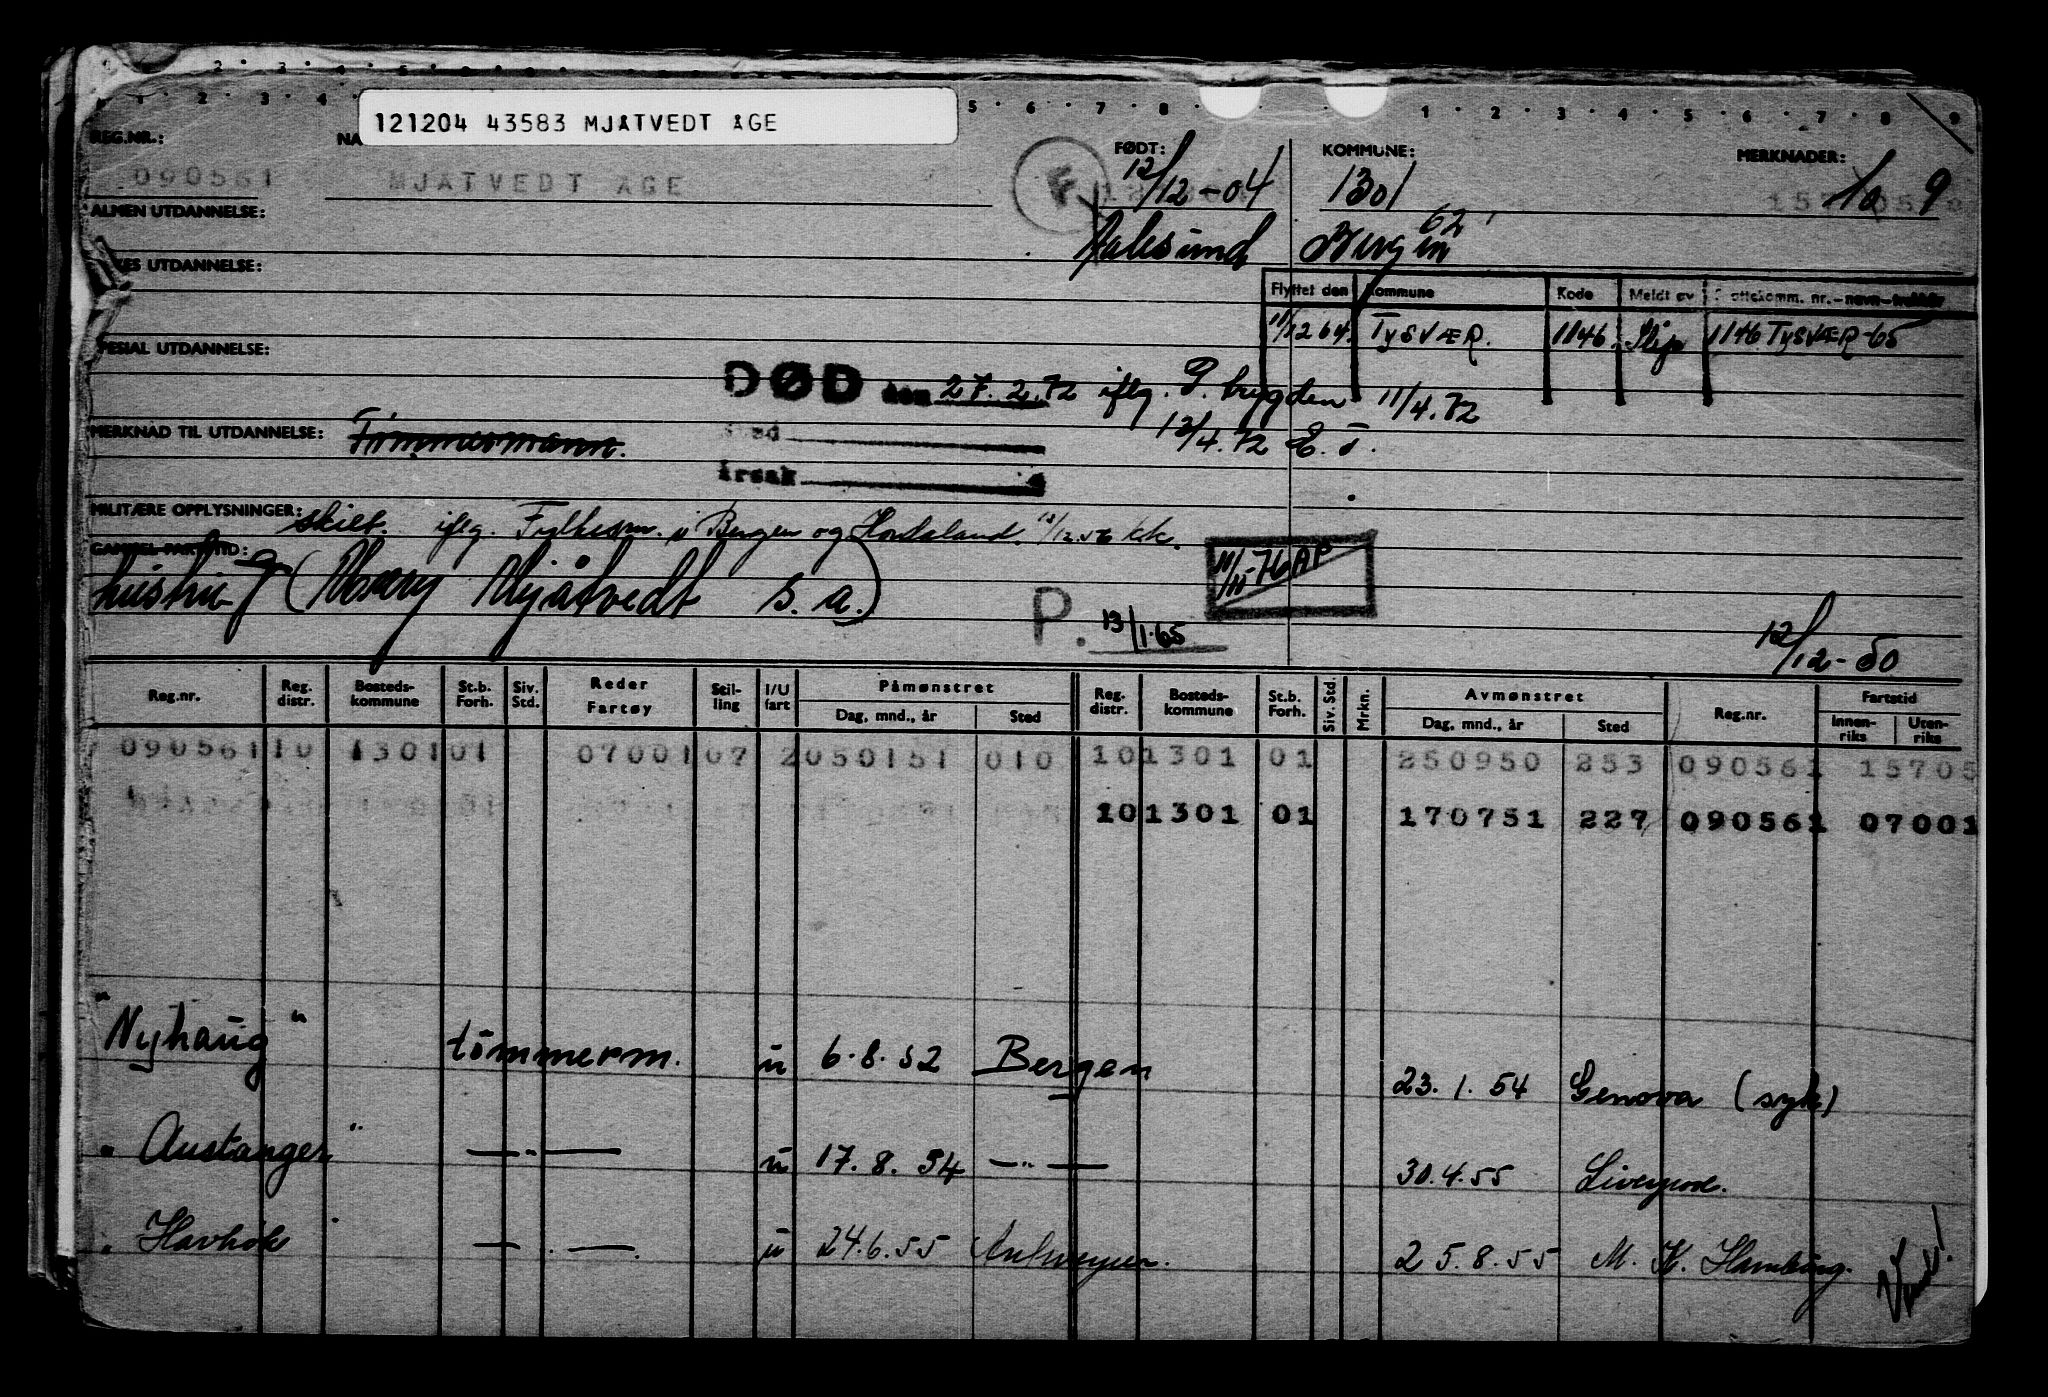 121204 43583 MJÅTVEDT ÅGE
REG.NR.: NA FØDT: KOMMUNE: MERKNADER:
090561 MJÅTVEDT ÅGE 12/12-04 1301 9
ALMEN UTDANNELSE: 62
Aalesund Bergen
UTDANNELSE:
Flyttet den Kommune Kode Meldt av
11/12 64. TYSVÆR. 1146. Skjp 1146 TYSVÆR-65
SPESIAL UTDANNELSE:
DØD den 27.2.72 iflg. P. brygden 11/4.72
MERKNAD TIL UTDANNELSE: Tömmermann. 12/4.72 E.T.
Årsak
MILITÆRE OPPLYSNINGER: skilt. iflg. Fylkesm. i Bergen og Hordaland. KK.
hustru g (Mary Mjåtvedt s.a.)
11/11-76 AP
P. 13/1.65
12/12-50
Reg.nr. Reg. distr. Bosteds-kommune St.b. Forh. Siv. Std. Reder Fartøy Stil-ling I/U fart Påmønstret Dag, mnd., år Sted Reg. distr. Bosteds-kommune St.b. Forh. Siv. Std. Mrkn. Avmønstret Dag, mnd., år Sted Reg.nr. Fartstid Innen-riks Uten-riks
090561 10 1301 01 07001 07 2 050151 010 10 1301 01 250950 253 090561 15705
10 1301 01 170751 227 090561 07001
"Nyhaug" tömmerm. u 6.8.52 Bergen 23.1.54 Genova (syk)
"Austanger" —"— u 17.8.54 —"— 30.4.55 Liverpool.
"Havhök" —"— u 24.6.55 Antwerpen. 25.8.55 M.K. Hamburg.
Vend!